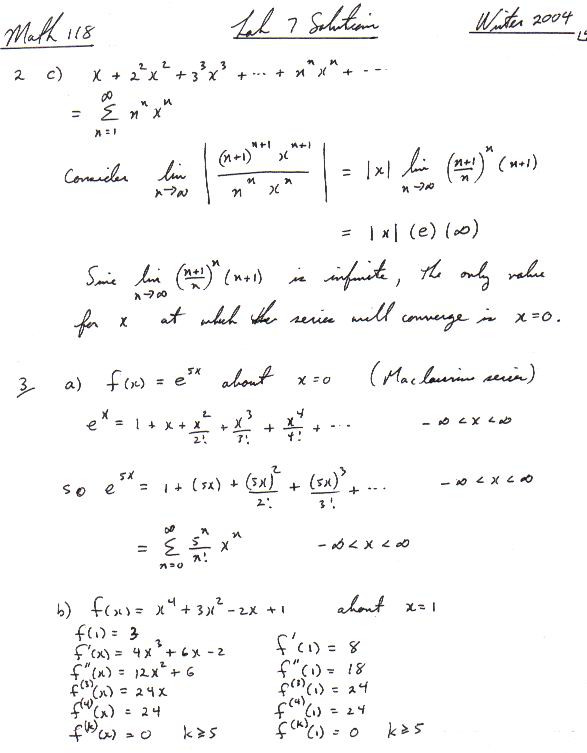 Math 118 Lab 7 Solution Winter 2004
2 c) x + 2²x² + 3³x³ + ··· + nⁿxⁿ + ---
= ∞ Σ n=1 nⁿxⁿ
Consider lim n→∞ | (n+1)ⁿ⁺¹ xⁿ⁺¹ / nⁿ xⁿ | = |x| lim n→∞ ((n+1)/n)ⁿ (n+1)
= |x| (e) (∞)
Sine lim n→∞ ((n+1)/n)ⁿ (n+1) is infinite, the only value
for x at which the series will converge is x=0.
3 a) f(x) = e⁵ˣ about x=0 (Maclaurine series)
eˣ = 1 + x + x²/2! + x³/3! + x⁴/4! + ··· -∞ < x < ∞
so e⁵ˣ = 1 + (5x) + (5x)²/2! + (5x)³/3! + ... -∞ < x < ∞
= ∞ Σ n=0 5ⁿ/n! xⁿ -∞ < x < ∞
b) f(x) = x⁴ + 3x² - 2x + 1 about x=1
f(1) = 3
f'(x) = 4x³ + 6x - 2 f'(1) = 8
f''(x) = 12x² + 6 f''(1) = 18
f⁽³⁾(x) = 24x f⁽³⁾(1) = 24
f⁽⁴⁾(x) = 24 f⁽⁴⁾(1) = 24
f⁽ᵏ⁾(x) = 0 k≥5 f⁽ᵏ⁾(1) = 0 k≥5